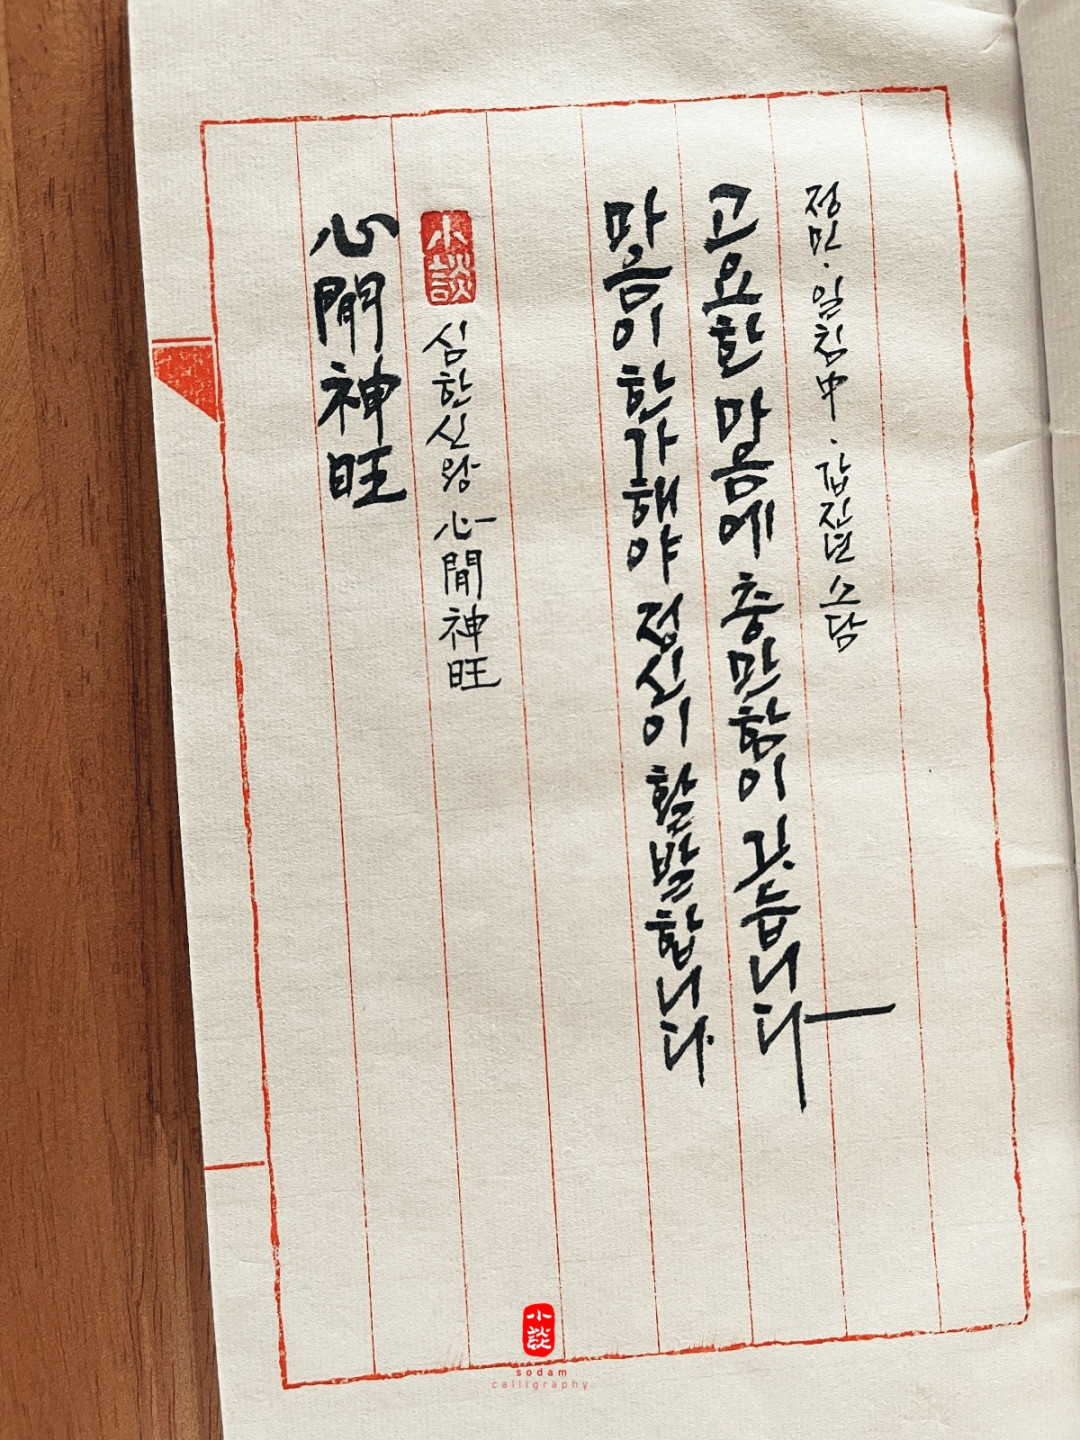 心閒神旺
小談
심한신왕 心閒神旺
마음이 한가해야 정신이 활발합니다.
고요한 마음에 충만함이 깃듭니다
정민·일침中·갑진년 소담
小談
sodam
calligraphy